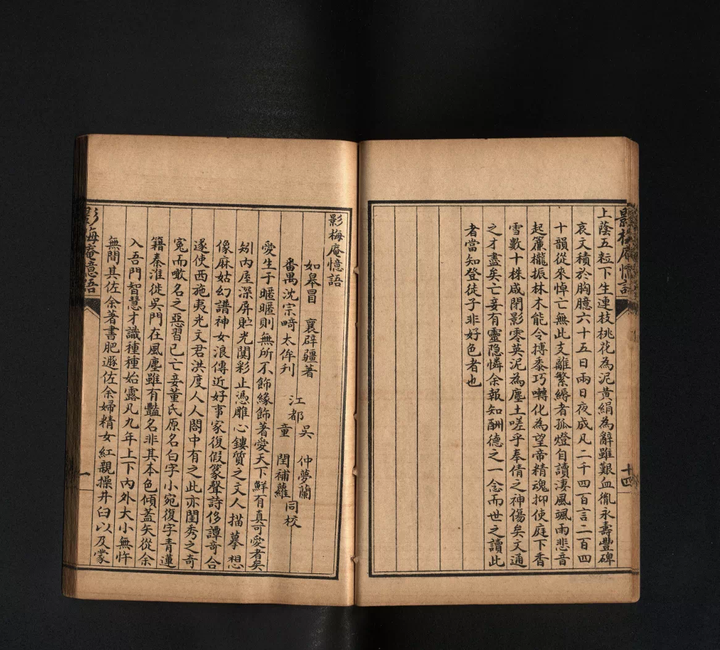 影梅庵憶語
上蔭五粒下生連枝桃花為泥黃絹為辭雖艱血胤永壽豐碑
哀文積於胸臆六十五日兩日夜成凡二千四百言二百四
十韻從來悼亡無此支離繁縟者孤燈自讀淒風颯雨悲音
起簾櫳振林木能令搏黍巧囀化為望帝精魂抑使庭下香
雪數十株咸閉影零英泥為塵土嗟乎奉倩之神傷矣文通
之才盡矣亡妾有靈隱憐余報知酬德之一念而世之讀此
者當知登徒子非好色者也
十四
影梅庵憶語
如皋冒 襄辟疆著 江都吳 仲夢蘭
番禺沈宗畸太侔刋 童 閏補蘿 同校
愛生于暱暱則無所不飾緣飾著愛天下鮮有真可愛者矣
矧內屋深屏貯光閟彩止憑雕心鏤質之文人描摹想
像麻姑幻譜神女浪傳近好事家復假篆聲詩侈譚奇合
遂使西施夷光文君洪度人人閣中有之此亦閨秀之奇
冤而噉名之惡習已亡妾董氏原名白字小宛復字青蓮
籍秦淮徙吳門在風塵雖有豔名非其本色傾蓋矢從余
入吾門智慧才識種種始露凡九年上下內外大小無忤
無間其佐余著書肥遯佐余婦精女紅親操井臼以及蒙
影梅庵憶語
一